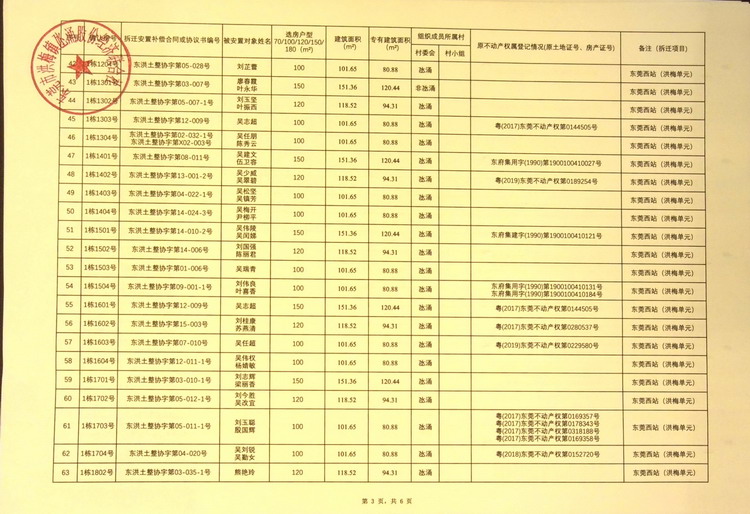 选房号 拆迁安置补偿合同或协议书编号 被安置对象姓名 选房户型70/100/120/150/180（m²） 建筑面积（m²） 专有建筑面积（m²） 组织成员所属村 原不动产权属登记情况(原土地证号、房产证号) 备注（拆迁项目）
村委会 村小组
1栋1204号 东洪土整协字第05-028号 刘芷蕾 100 101.65 80.88 氹涌 东莞西站（洪梅单元）
43 1栋1301号 东洪土整协字第03-007号 廖春霞 叶永华 150 151.36 120.44 非氹涌 东莞西站（洪梅单元）
44 1栋1302号 东洪土整协字第05-007-1号 刘玉坚 叶振西 120 118.52 94.31 氹涌 东莞西站（洪梅单元）
45 1栋1303号 东洪土整协字第12-009号 吴志超 100 101.65 80.88 氹涌 粤(2017)东莞不动产权第0144505号 东莞西站（洪梅单元）
46 1栋1304号 东洪土整协字第02-032-1号 东洪土整协字第X02-003号 吴任朋 陈秀云 100 101.65 80.88 氹涌 东莞西站（洪梅单元）
47 1栋1401号 东洪土整协字第08-011号 吴建文 伍卫容 150 151.36 120.44 氹涌 东府集用字(1990)第1900100410027号 东莞西站（洪梅单元）
48 1栋1402号 东洪土整协字第13-001-2号 吴少威 吴翠碧 120 118.52 94.31 氹涌 粤(2019)东莞不动产权第0189254号 东莞西站（洪梅单元）
49 1栋1403号 东洪土整协字第04-022-1号 吴松坚 吴镇芳 100 101.65 80.88 氹涌 东莞西站（洪梅单元）
50 1栋1404号 东洪土整协字第14-024-3号 吴梅开 尹柳平 100 101.65 80.88 氹涌 东莞西站（洪梅单元）
51 1栋1501号 东洪土整协字第14-010-2号 吴伟陵 吴闰娣 150 151.36 120.44 氹涌 东府集建字(1990)第1900100410121号 东莞西站（洪梅单元）
52 1栋1502号 东洪土整协字第14-006号 刘国强 陈丽君 120 118.52 94.31 氹涌 东莞西站（洪梅单元）
53 1栋1503号 东洪土整协字第01-006号 吴瑞青 100 101.65 80.88 氹涌 东莞西站（洪梅单元）
54 1栋1504号 东洪土整协字第09-001-1号 刘伟良 叶喜香 100 101.65 80.88 氹涌 东府集用字(1990)第1900100410131号 东府集用字(1990)第1900100410184号 东莞西站（洪梅单元）
55 1栋1601号 东洪土整协字第12-009号 吴志超 150 151.36 120.44 氹涌 粤(2017)东莞不动产权第0144505号 东莞西站（洪梅单元）
56 1栋1602号 东洪土整协字第15-003号 刘柱康 苏燕清 120 118.52 94.31 氹涌 粤(2017)东莞不动产权第0280537号 东莞西站（洪梅单元）
57 1栋1603号 东洪土整协字第07-010号 吴任超 100 101.65 80.88 氹涌 粤(2019)东莞不动产权第0229580号 东莞西站（洪梅单元）
58 1栋1604号 东洪土整协字第12-011-1号 吴伟权 杨婧敏 100 101.65 80.88 氹涌 东莞西站（洪梅单元）
59 1栋1701号 东洪土整协字第03-010-1号 刘志辉 梁丽香 150 151.36 120.44 氹涌 东莞西站（洪梅单元）
60 1栋1702号 东洪土整协字第05-012-1号 刘今胜 吴改宜 120 118.52 94.31 氹涌 东莞西站（洪梅单元）
61 1栋1703号 东洪土整协字第05-011-1号 刘玉聪 殷国辉 100 101.65 80.88 氹涌 粤(2017)东莞不动产权第0169357号 粤(2017)东莞不动产权第0178343号 粤(2017)东莞不动产权第0318188号 粤(2017)东莞不动产权第0169358号 东莞西站（洪梅单元）
62 1栋1704号 东洪土整协字第04-020号 吴刘锐 吴勤女 100 101.65 80.88 氹涌 粤(2018)东莞不动产权第0152720号 东莞西站（洪梅单元）
63 1栋1802号 东洪土整协字第03-035-1号 熊艳玲 120 118.52 94.31 氹涌 东莞西站（洪梅单元）
第 3 页，共 6 页